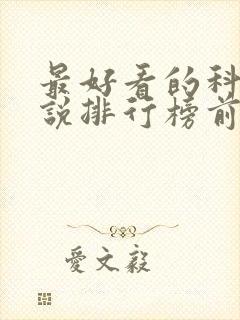 最好看的科
說排行榜前
愛文毅